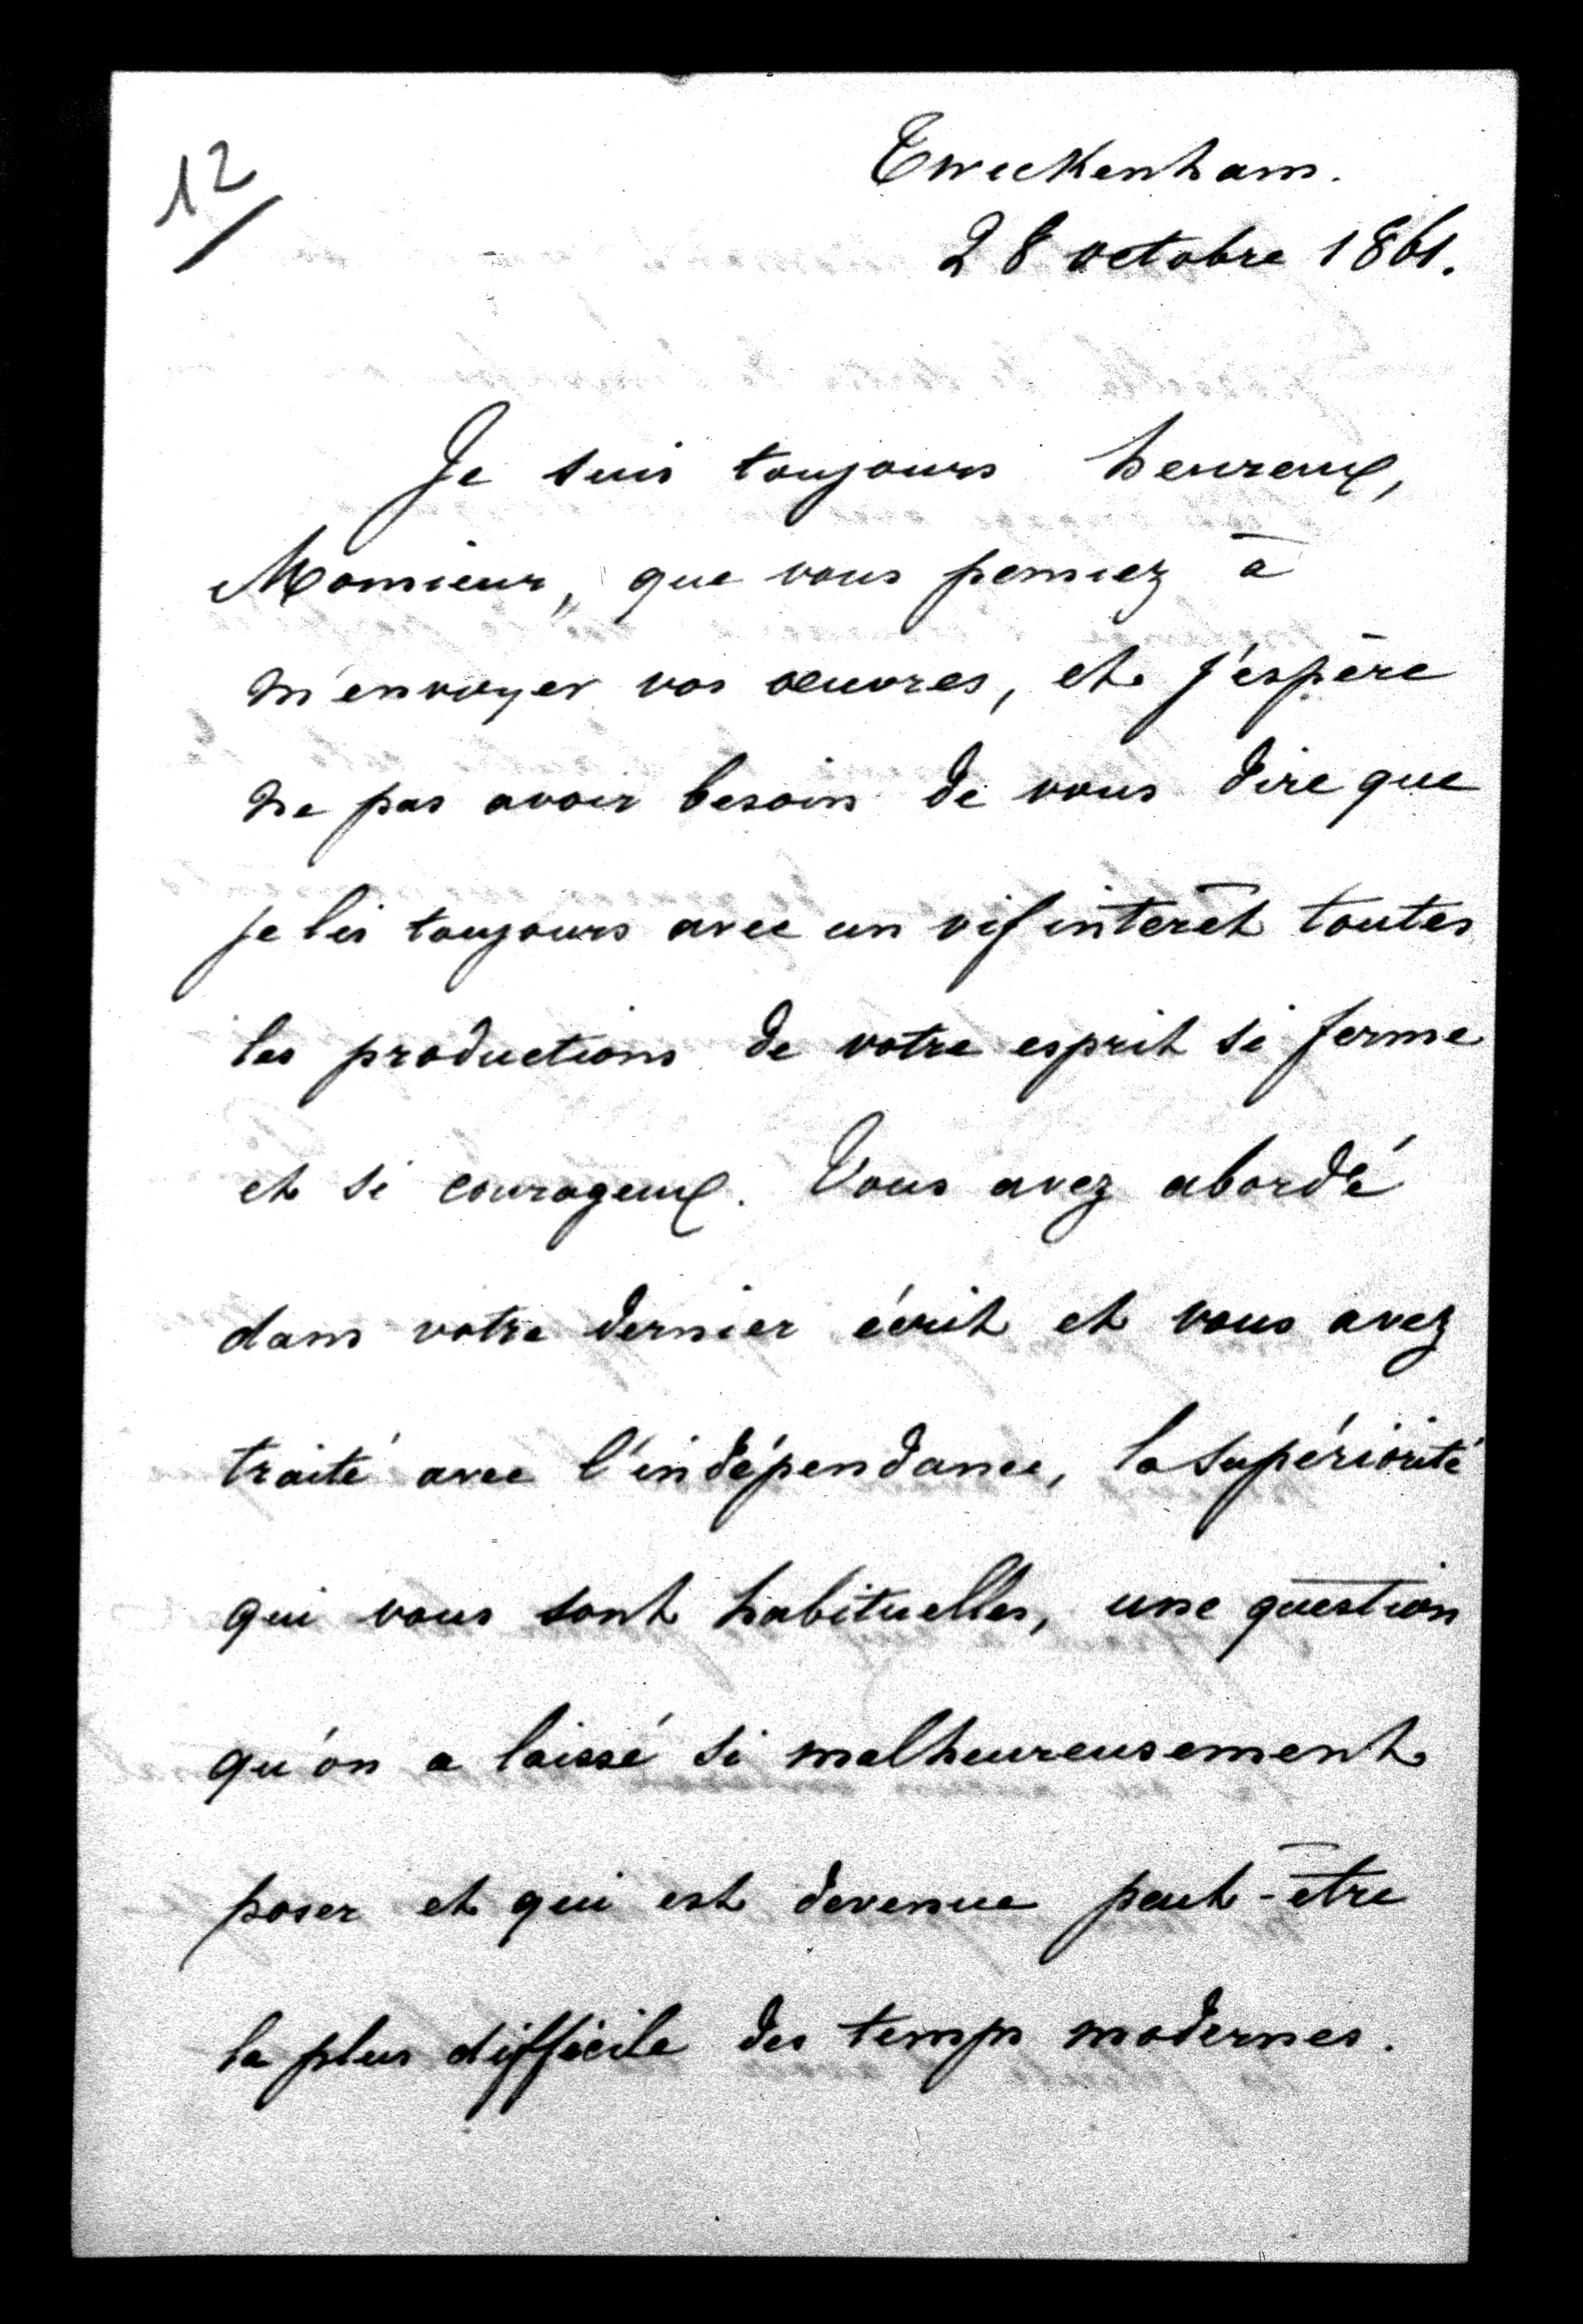 12
Tweckenham.
28 octobre 1861.
Je suis toujours heureux,
Monsieur, que vous pensiez à
m'envoyer vos œuvres, et j'espère
ne pas avoir besoin de vous dire que
je lis toujours avec un vif intérêt toutes
les productions de votre esprit si ferme
et si courageux. Vous avez abordé
dans votre dernier écrit et vous avez
traité avec l'indépendance, la supériorité
qui vous sont habituelles, une question
qu'on a laissé si malheureusement
poser et qui est devenue peut-être
la plus difficile des temps modernes.